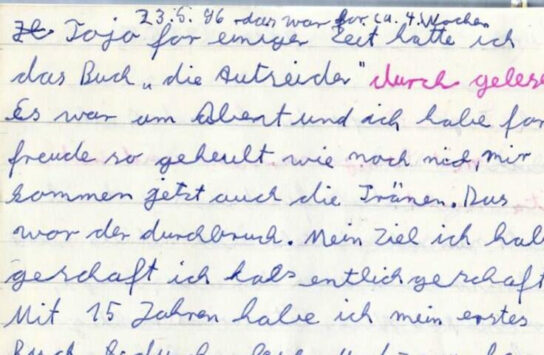 23.5.96 das war for ca. 4. Wochen
Jojo for einiger Zeit hatte ich
das Buch „die Autreider" durch gelese
Es war am Abent und ich habe for
freude so geheult wie noch nich, mir
kommen jetzt auch die Tränen. Das
war der durchbruch. Mein Ziel ich hab
geschaft ich habs entlich geschaft
Mit 15 Jahren habe ich mein erstes